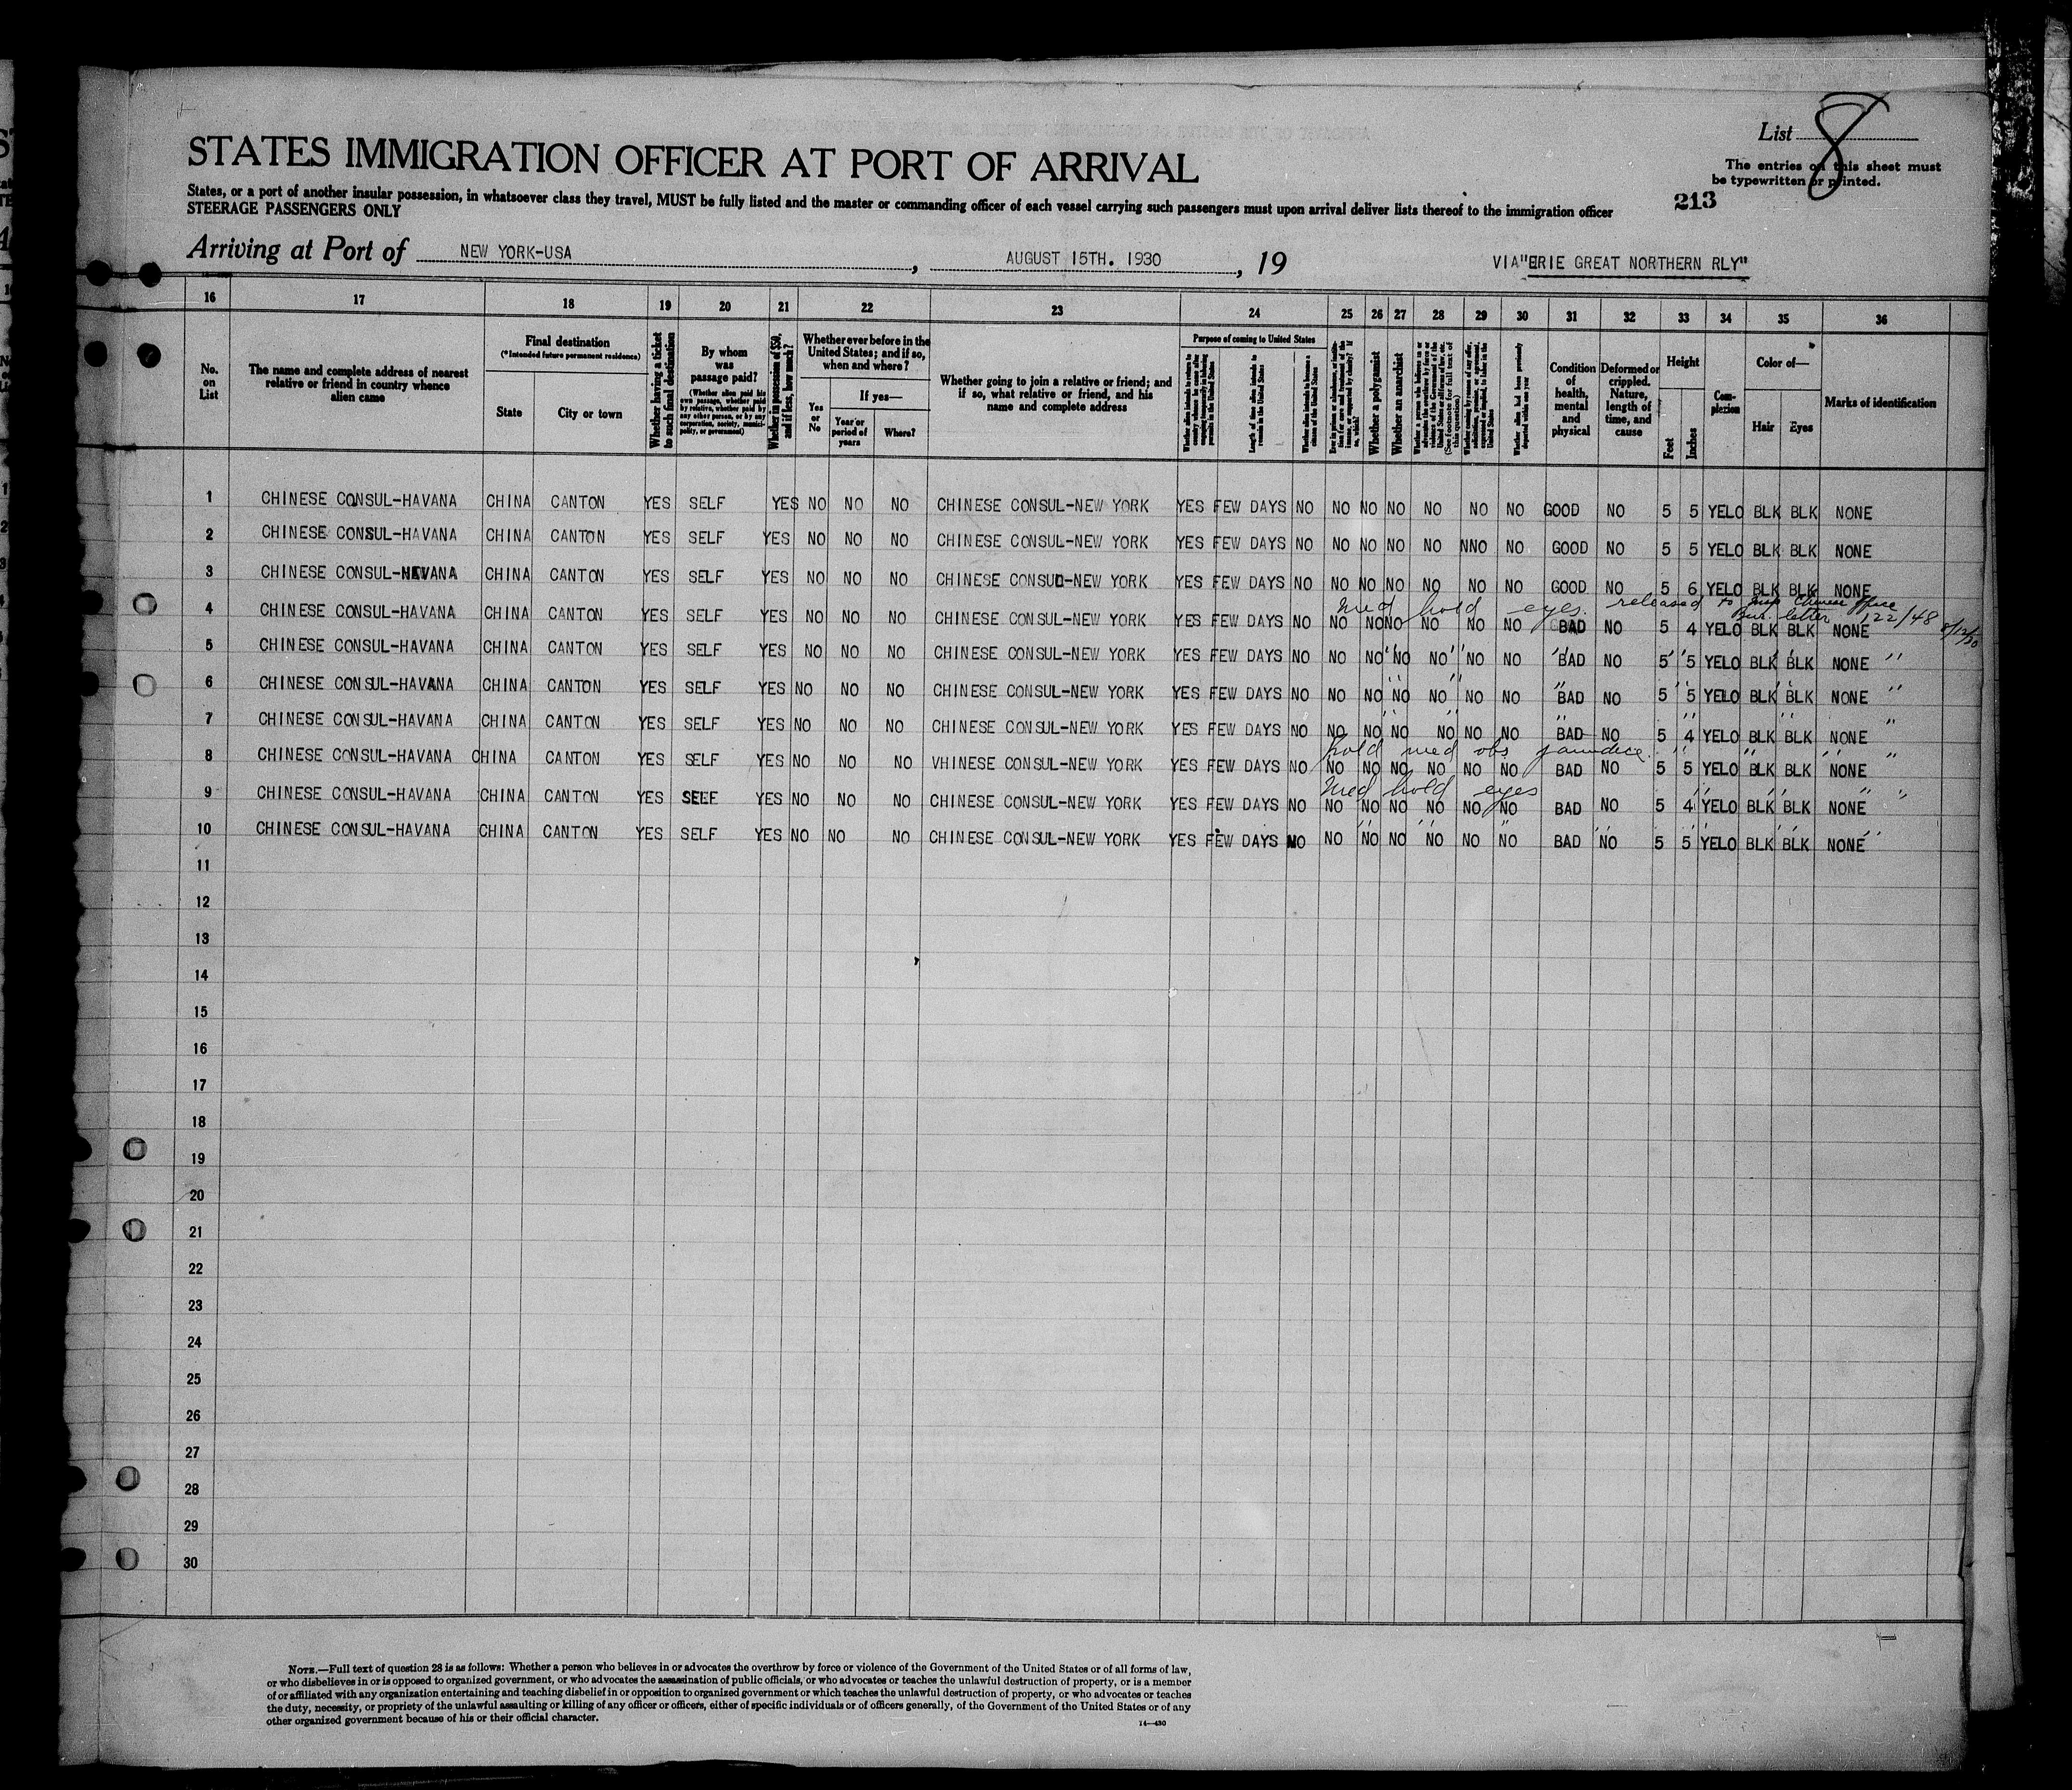 List 8
The entries on this sheet must
be typewritten or printed.
213
STATES IMMIGRATION OFFICER AT PORT OF ARRIVAL
States, or a port of another insular possession, in whatsoever class they travel, MUST be fully listed and the master or commanding officer of each vessel carrying such passengers must upon arrival deliver lists thereof to the immigration officer
STEERAGE PASSENGERS ONLY
Arriving at Port of NEW YORK-USA, AUGUST 15TH. 1930, 19 VIA"ERIE GREAT NORTHERN RLY"
16 17 18 19 20 21 22 23 24 25 26 27 28 29 30 31 32 33 34 35 36
No. on List
The name and complete address of nearest relative or friend in country whence alien came
Final destination
(*Intended future permanent residence)
State
City or town
Whether having a ticket to such final destination
By whom was passage paid?
(Whether alien paid his own passage, whether paid by relative, whether paid by any other person, or by any corporation, society, municipality, or government)
Whether in possession of $50, and if less, how much?
Whether ever before in the United States; and if so, when and where?
Yes or No
If yes—
Year or period of years
Where?
Whether going to join a relative or friend; and if so, what relative or friend, and his name and complete address
Purpose of coming to United States
Length of time alien intends to remain in the United States
Whether alien intends to become a citizen of the United States
Whether a polygamist
Whether an anarchist
(See footnote for full text of this question)
Condition of health, mental and physical
Deformed or crippled. Nature, length of time, and cause
Height
Feet
Inches
Complexion
Color of—
Hair
Eyes
Marks of identification
1 CHINESE CONSUL-HAVANA CHINA CANTON YES SELF YES NO NO NO CHINESE CONSUL-NEW YORK YES FEW DAYS NO NO NO NO NO NO NO GOOD NO 5 5 YELO BLK BLK NONE
2 CHINESE CONSUL-HAVANA CHINA CANTON YES SELF YES NO NO NO CHINESE CONSUL-NEW YORK YES FEW DAYS NO NO NO NO NO NNO NO GOOD NO 5 5 YELO BLK BLK NONE
3 CHINESE CONSUL-HAVANA CHINA CANTON YES SELF YES NO NO NO CHINESE CONSUL-NEW YORK YES FEW DAYS NO NO NO NO NO NO NO GOOD NO 5 6 YELO BLK BLK NONE
med hold eyes. released to Insp Chinese office
Bur. letter 122/48 8/12/30
4 CHINESE CONSUL-HAVANA CHINA CANTON YES SELF YES NO NO NO CHINESE CONSUL-NEW YORK YES FEW DAYS NO NO NO NO NO NO NO BAD NO 5 4 YELO BLK BLK NONE
5 CHINESE CONSUL-HAVANA CHINA CANTON YES SELF YES NO NO NO CHINESE CONSUL-NEW YORK YES FEW DAYS NO NO NO NO NO NO NO BAD NO 5 5 YELO BLK BLK NONE "
6 CHINESE CONSUL-HAVANA CHINA CANTON YES SELF YES NO NO NO CHINESE CONSUL-NEW YORK YES FEW DAYS NO NO NO NO NO NO NO BAD NO 5 5 YELO BLK BLK NONE "
7 CHINESE CONSUL-HAVANA CHINA CANTON YES SELF YES NO NO NO CHINESE CONSUL-NEW YORK YES FEW DAYS NO NO NO NO NO NO NO BAD NO 5 4 YELO BLK BLK NONE "
hold med obs jaundice " " " "
8 CHINESE CONSUL-HAVANA CHINA CANTON YES SELF YES NO NO NO VHINESE CONSUL-NEW YORK YES FEW DAYS NO NO NO NO NO NO NO BAD NO 5 5 YELO BLK BLK NONE
med hold eyes " " " "
9 CHINESE CONSUL-HAVANA CHINA CANTON YES SELF YES NO NO NO CHINESE CONSUL-NEW YORK YES FEW DAYS NO NO NO NO NO NO NO BAD NO 5 4 YELO BLK BLK NONE
10 CHINESE CONSUL-HAVANA CHINA CANTON YES SELF YES NO NO NO CHINESE CONSUL-NEW YORK YES FEW DAYS NO NO NO NO NO NO NO BAD NO 5 5 YELO BLK BLK NONE "
11
12
13
14
15
16
17
18
19
20
21
22
23
24
25
26
27
28
29
30
NOTE.—Full text of question 28 is as follows: Whether a person who believes in or advocates the overthrow by force or violence of the Government of the United States or of all forms of law,
or who disbelieves in or is opposed to organized government, or who advocates the assassination of public officials, or who advocates or teaches the unlawful destruction of property, or is a member
of or affiliated with any organization entertaining and teaching disbelief in or opposition to organized government or which teaches the unlawful destruction of property, or who advocates or teaches
the duty, necessity, or propriety of the unlawful assaulting or killing of any officer or officers, either of specific individuals or of officers generally, of the Government of the United States or of any
other organized government because of his or their official character.
14—430